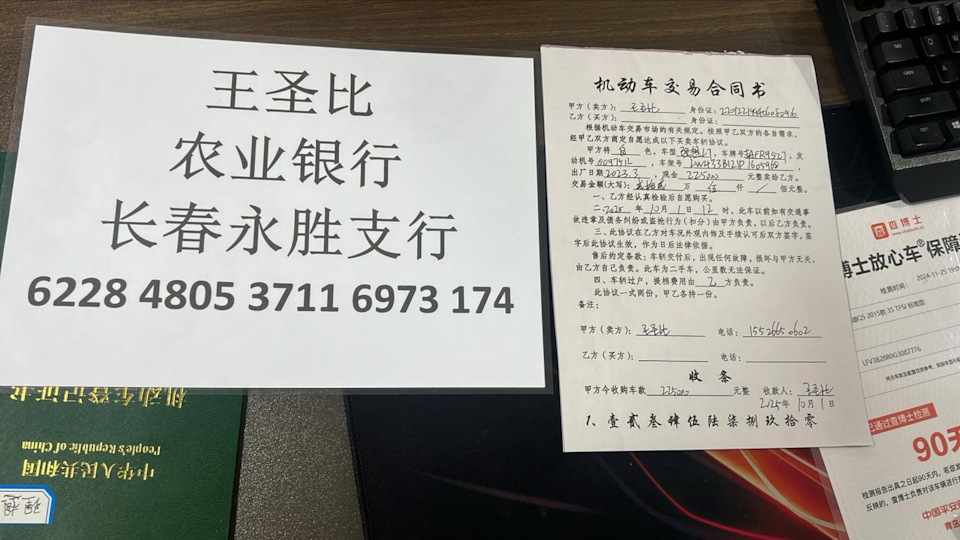 王圣比
农业银行
长春永胜支行
6228 4805 3711 6973 174
机动车登记证书
People's Republic of China
中华人民共和国
理想
机动车交易合同书
甲方（卖方）：王圣比 身份证：
乙方（买方）： 身份证：
根据机动车交易市场的有关规定。按照甲乙双方的各自需求，
经甲乙双方商定自愿达成以下买卖车辆协议。
甲方将 色，车型 理想L7，车牌号 ，发
动机号 ，车架号
出厂日期 2023.3，现金 225000 元整卖给乙方。
交易金额(大写)： 万 伍 仟 / 佰元整。
一、乙方经认真检验后自愿购买。
二、2025 年 10 月 1 日 12 时，此车以前如有交通事
故违章及债务纠纷或盗抢行为（扣分）由甲方负责，以后乙方负责。
三、此协议在乙方对车况外观内饰及手续认可后双方签字，签
字后此协议生效，作为日后法律依据。
售后约定条款：车辆交付后，出现任何故障，损坏与甲方无关，
由乙方自己负责。此车为二手车，公里数无法保证。
四、车辆过户，提档费用由 乙 方负责。
此协议一式两份，甲乙各持一份。
备注：
甲方（卖方）：王圣比 电话：15526650602
乙方（买方）： 电话：
收 条
甲方今收购车款 225000 元整 收款人：王圣比
2025年 10月 1日
1、壹贰叁肆伍陆柒捌玖拾零
查博士
博士放心车®保障
检测时间： 2024-11-25 19:0
迪Q5 2015款 35 TFSI 标准型
LFV3B28R0G3087776
已通过查博士检测
90天
检测报告出具之日起90天内，若您发
反映的，查博士负责对该车辆进行
中国平安